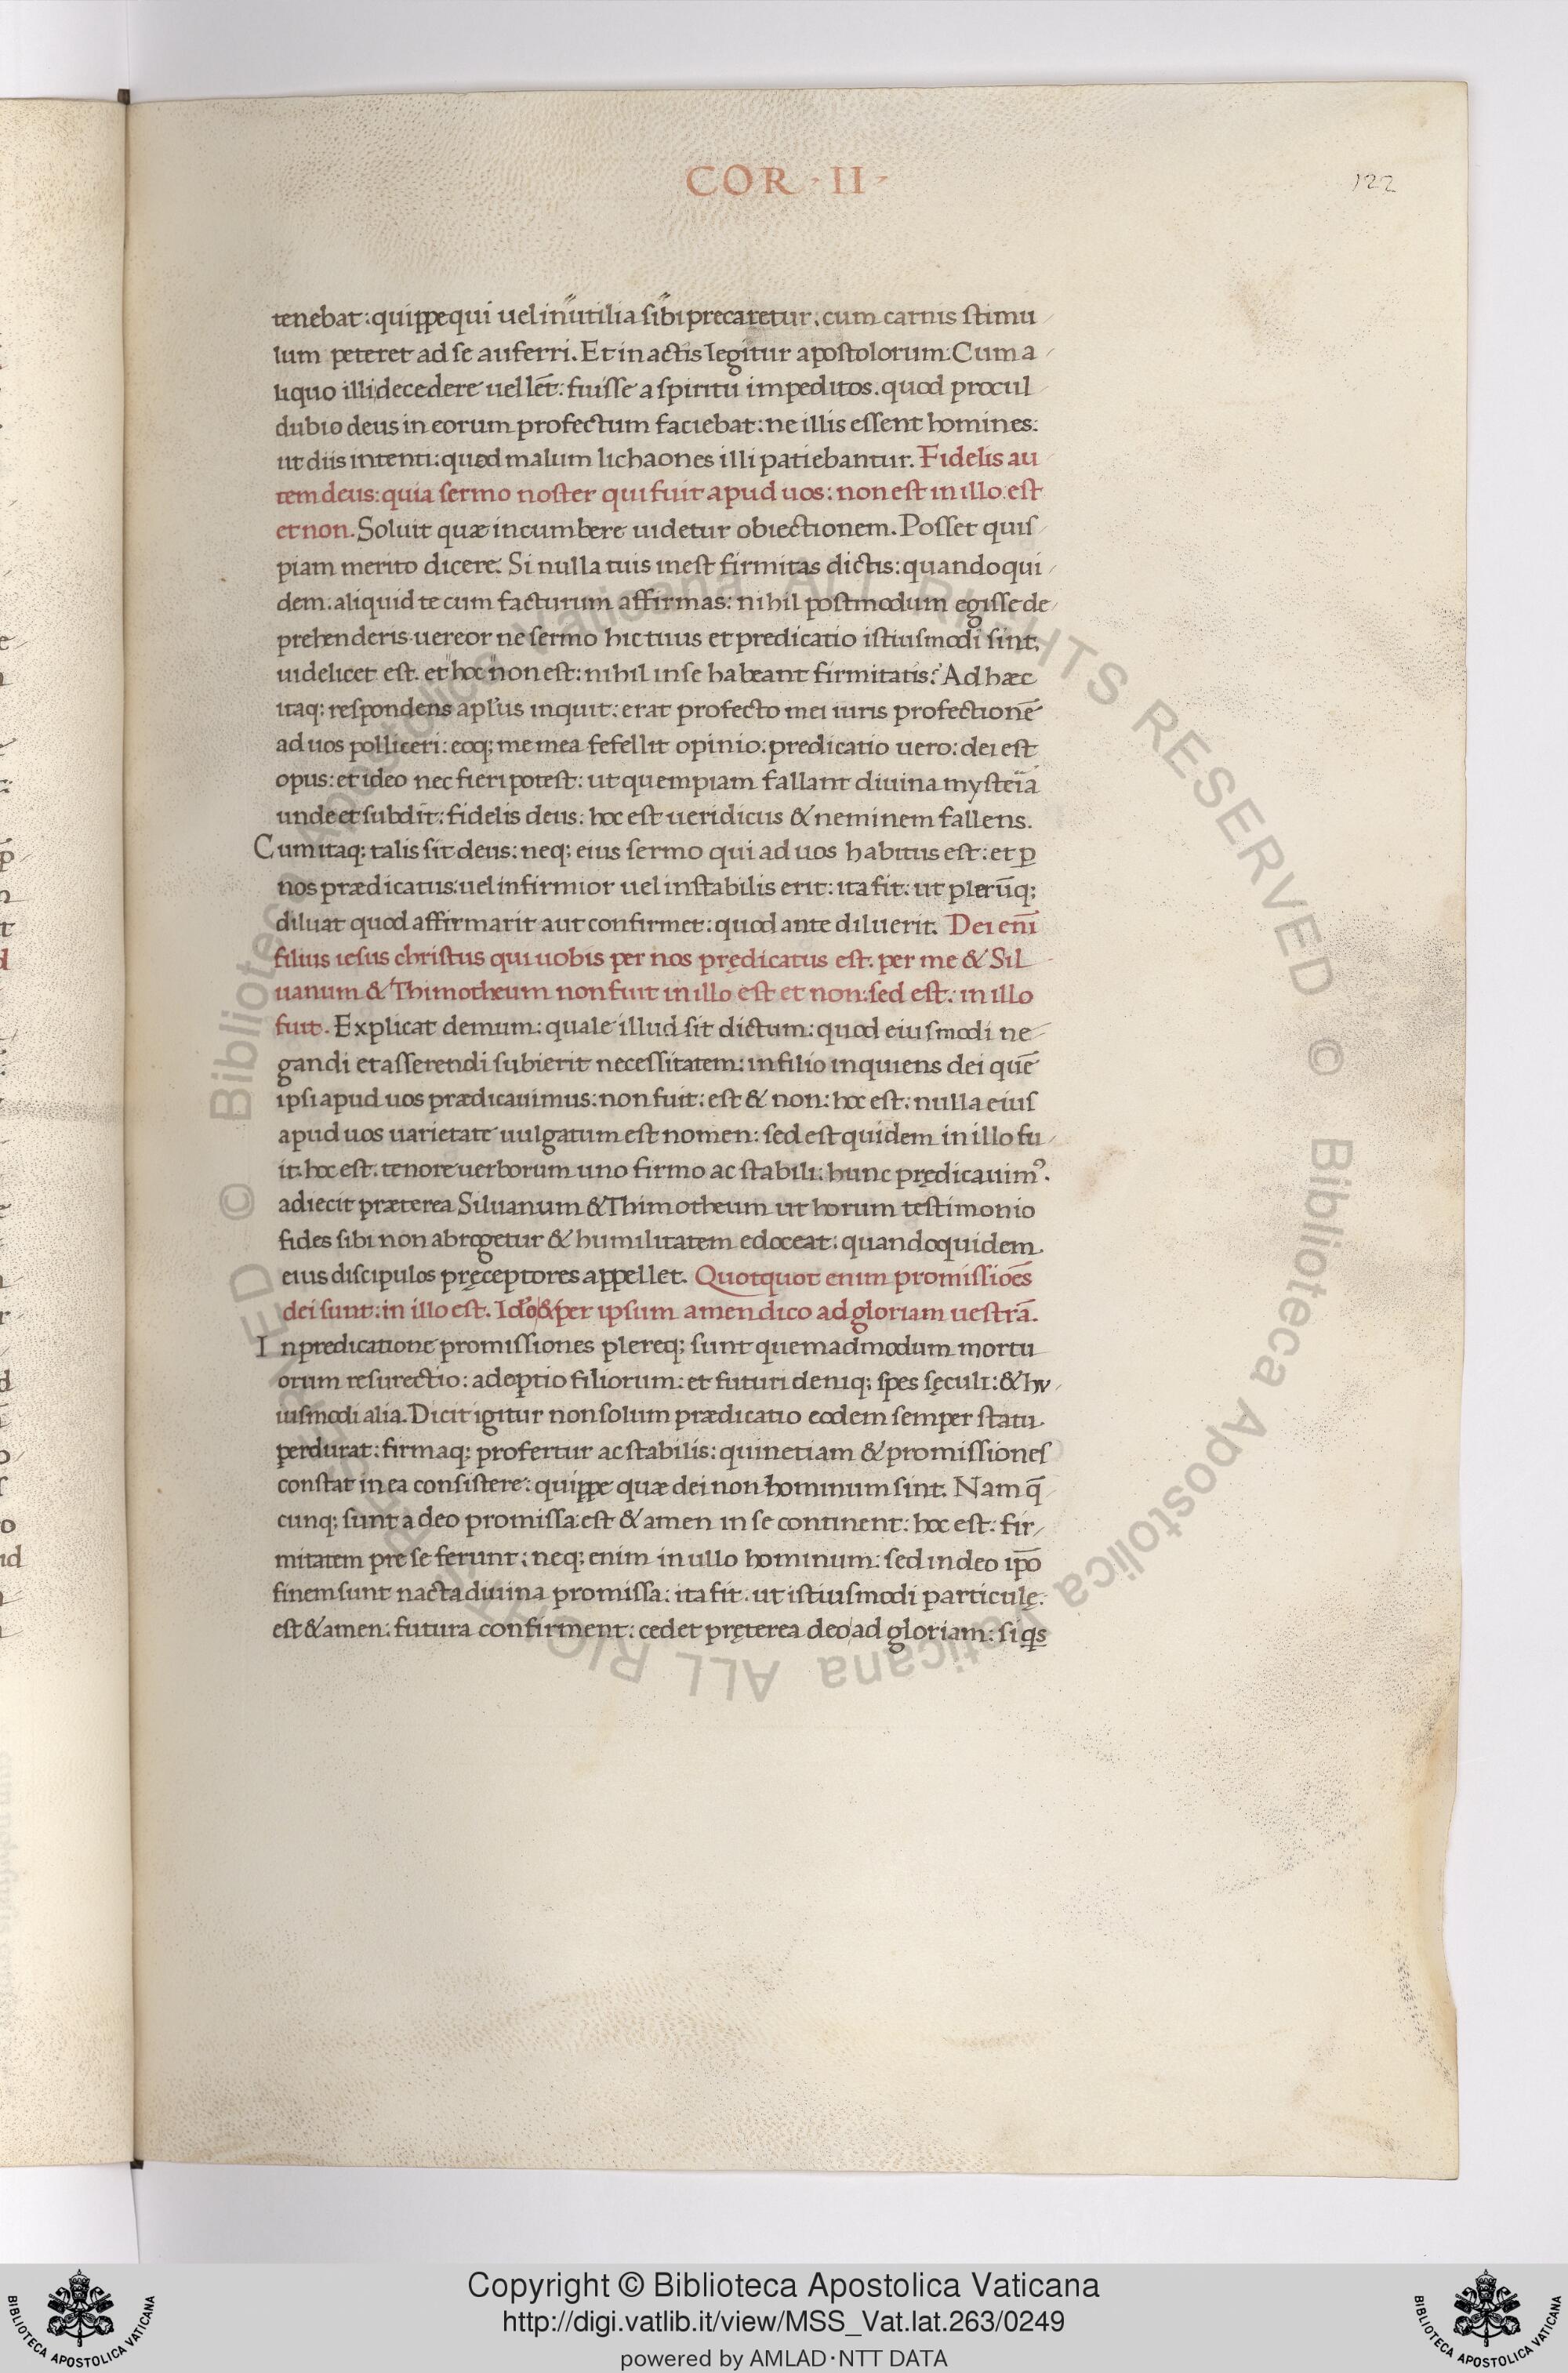 COR · II ·
122
tenebat: quippe qui uel inutilia sibi precaretur. cum carnis stimu
lum peteret ad se auferri. Et in actis legitur apostolorum: Cum a
liquo illi decedere uellet̄: fuisse a spiritu impeditos. quod procul
dubio deus in eorum profectum faciebat: ne illis essent homines:
ut diis intenti: quod malum lichaones illi patiebantur. Fidelis au
tem deus: quia sermo noster qui fuit apud uos: non est in illo est
et non. Soluit quæ incumbere uidetur obiectionem. Posset quis
piam merito dicere. Si nulla tuis inest firmitas dictis: quandoqui
dem. aliquid te cum facturum affirmas: nihil postmodum egisse de
prehenderis uereor ne sermo hic tuus et predicatio istiusmodi sint.
uidelicet est. et "hoc" non est: nihil in se habeant firmitatis? Ad hæc
itaq; respondens apl'us inquit: erat profecto mei iuris profectionē
ad uos polliceri: eoq; me mea fefellit opinio: predicatio uero: dei est
opus: et ideo nec fieri potest: ut quempiam fallant diuina mysteīa
unde et subdit: fidelis deus: hoc est ueridicus & neminem fallens.
Cum itaq; talis sit deus: neq; eius sermo qui ad uos habitus est: et ꝑ
nos prædicatus: uel infirmior uel instabilis erit: ita fit: ut plerūq;
diluat quod affirmarit aut confirmet: quod ante diluerit. Dei enī
filius iesus christus qui uobis per nos prędicatus est. per me & Sil
uanum & Thimotheum non fuit in illo est et non: sed est: in illo
fuit. Explicat demum: quale illud sit dictum: quod eiusmodi ne
gandi et asserendi subierit necessitatem: in filio inquiens dei quē
ipsi apud uos prædicauimus: non fuit: est & non: hoc est: nulla eius
apud uos uarietate uulgatum est nomen: sed est quidem in illo fu
it. hoc est. tenore uerborum uno firmo ac stabili: hunc prędicauimꝰ.
adiecit præterea Siluanum & Thimotheum ut horum testimonio
fides sibi non abrogetur & humilitatem edoceat: quandoquidem
eius discipulos pręceptores appellet. Quotquot enim promissiōes
dei sunt: in illo est. Ido' & per ipsum amen dico ad gloriam uestrā.
In predicatione promissiones plereq; sunt quemadmodum mortu
orum resurectio: adoptio filiorum: et futuri deniq; spes sęculi: & hu
iusmodi alia. Dicit igitur non solum prædicatio eodem semper statu
perdurat: firmaq; profertur ac stabilis: quinetiam & promissiones
constat in ea consistere: quippe quæ dei non hominum sint. Nam q̄
cunq; sunt a deo promissa: est & amen in se continent: hoc est: fir
mitatem pre se ferunt: neq; enim in ullo hominum: sed in deo ip̄o
finem sunt nacta diuina promissa: ita fit. ut istiusmodi particulę:
est & amen: futura confirment: cedet pręterea deo ad gloriam: si qs
Copyright © Biblioteca Apostolica Vaticana
http://digi.vatlib.it/view/MSS_Vat.lat.263/0249
powered by AMLAD·NTT DATA